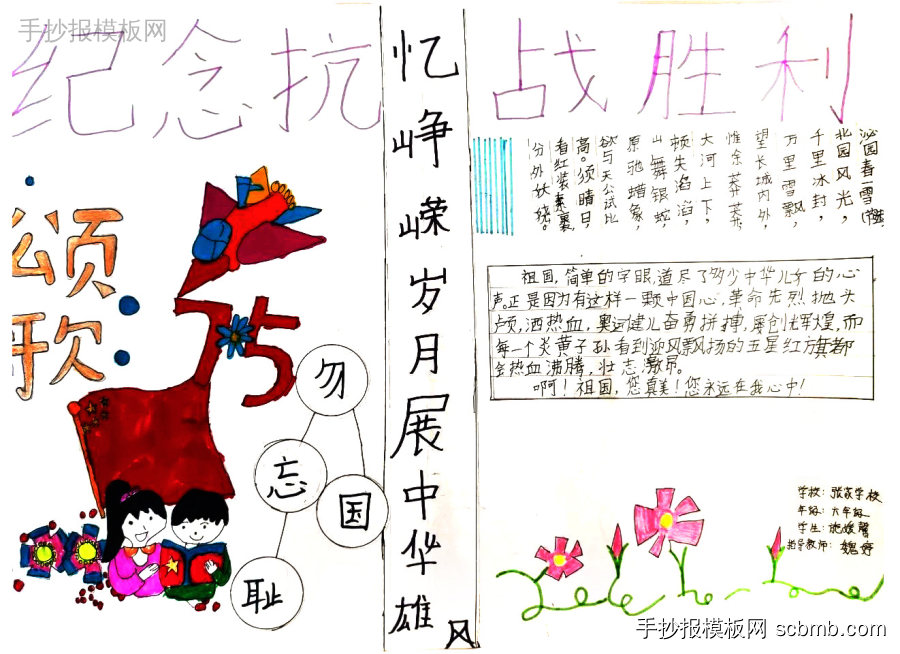 手抄报模板网
纪念抗
战胜利
忆峥嵘岁月展中华雄风
颂歌
75
勿忘国耻
沁园春雪
北园风光，
千里冰封，
万里雪飘，
望长城内外，
惟余莽莽
大河上下，
顿失滔滔，
山舞银蛇，
原驰蜡象，
欲与天公试比
高。须晴日，
看红装素裹
分外妖娆。
祖国，简单的字眼，道尽了多少中华儿女的心
声。正是因为有这样一颗中国心，革命先烈抛头
颅，洒热血，奥运健儿奋勇拼搏，屡创辉煌，而
每一个炎黄子孙看到迎风飘扬的五星红旗都
会热血沸腾，壮志激昂。
啊！祖国，您真美！您永远在我心中！
学校：张家学校
年级：六年级
学生：
指导教师：魏婷
手抄报模板网 scbmb.com